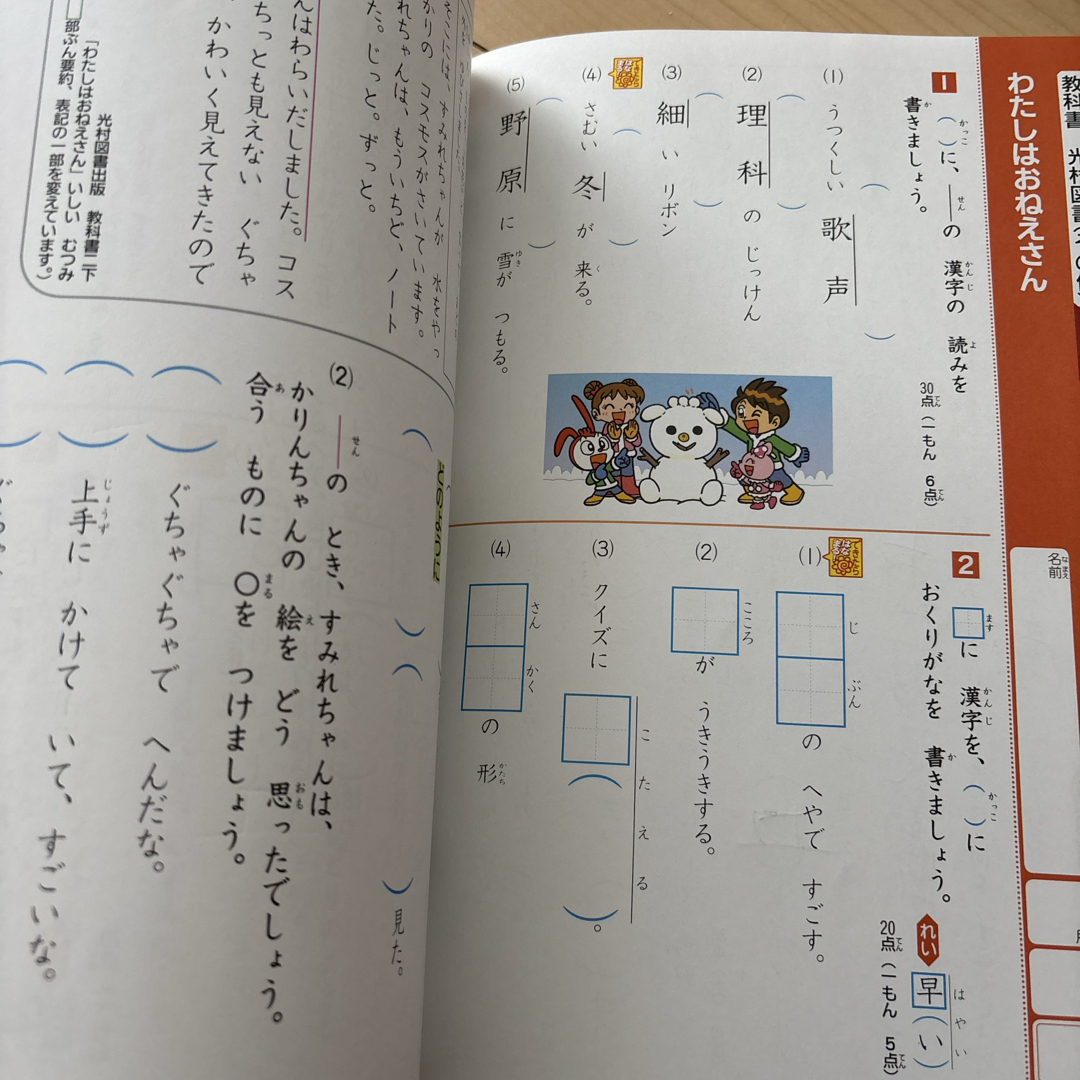 わたしはおねえさん
1 （　）に、――の 漢字の 読みを
書きましょう。
30点（一もん 6点）
(1) うつくしい 歌声
(2) 理科の じっけん
(3) 細い リボン
(4) さむい 冬が 来る。
(5) 野原に 雪が つもる。
名前
2 □に 漢字を、（　）に
おくりがなを 書きましょう。
れい 早（い）
はやい
20点（一もん 5点）
(1) じぶん の へやで すごす。
(2) こころ が うきうきする。
(3) クイズに こたえる （　）。
(4) さんかく の 形
れちゃんは、もういちど、ノート
た。じっと。ずっと。
んはわらいだしました。コス
ちっとも見えない ぐちゃ
かわいく見えてきたので
光村図書出版 教科書二下
「わたしはおねえさん」いしい むつみ
部ぶん要約、表記の一部を変えています。）
（　）（　）見た。
(2) ――の とき、すみれちゃんは、
かりんちゃんの 絵を どう 思ったでしょう。
合う ものに ○を つけましょう。
（　） ぐちゃぐちゃで へんだな。
（　） 上手に かけて いて、すごいな。